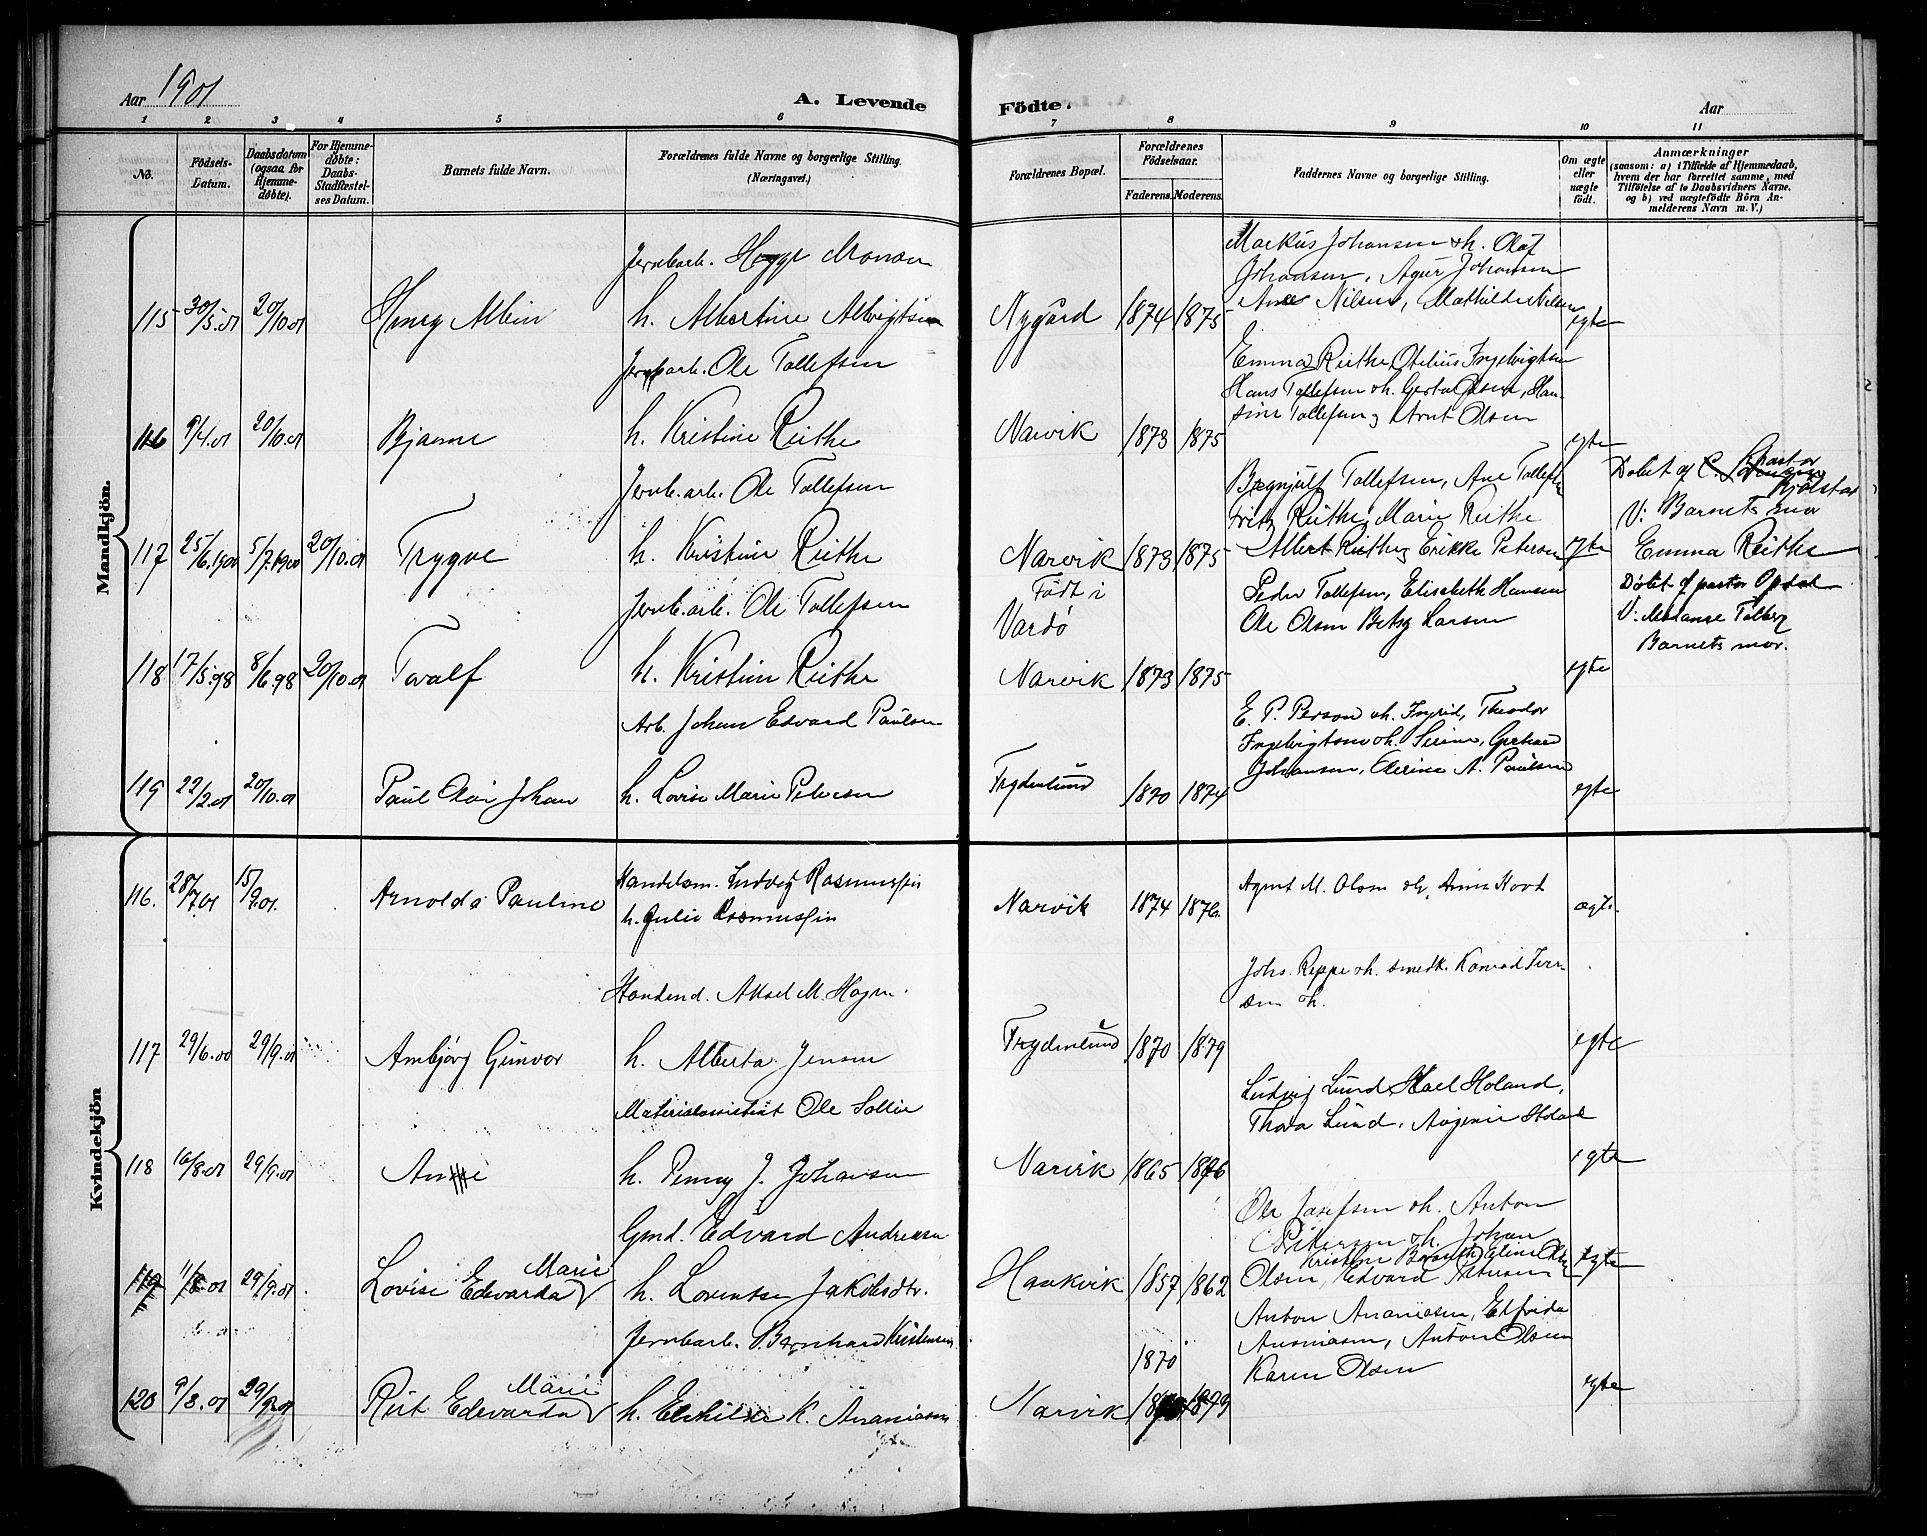 Aar 1901
A. Levende
Födte.
Aar
1 2 3 4 5 6 7 8 9 10 11
No.
Födsels-Datum.
Daabsdatum (ogsaa for Hjemme-døbte).
For Hjemme-døbte: Daabs-Stadfæstel-ses Datum.
Barnets fulde Navn.
Forældrenes fulde Navne og borgerlige Stilling. (Næringsvei.)
Forældrenes Bopæl.
Forældrenes Fødselsaar.
Faderens. Moderens.
Faddernes Navne og borgerlige Stilling.
Om ægte eller uægte født.
Anmærkninger (saasom: a) i Tilfælde af Hjemmedaab, hvem der har forrettet samme, med Tilføielse af to Daabsvidners Navne. og b) ved uægtefødte Börn Anmelderens Navn m. V.)
Mandkjön.
115 30/5.01 20/10.01 Henry Albin
Jernbarb. Monson
h. Albertine Albrigtsen
Nygård 1874 1875
Markus Johansen oh. Olaf
Johansen, Johansen
Nilsen, Mathilde Nilsen
egte
116 9/4.01 20/10.01 Bjarne
Jernbarb. Ole Tollefsen
h. Kristine Reithe
Narvik 1873 1875
Emma Reithe, Otelius Ingebrigtsen
Hans Tollefsen oh. Olsen, Han-
sine Tollefsen, Arnt Olsen
egte
117 25/6.1900 5/7.1900 20/10.01 Trygve
Jernb.arb. Ole Tollefsen
h. Kristine Reithe
Narvik 1873 1875
Tollefsen, Ane Tollefsen
Fritz Reithe, Marie Reithe
Albert Reithe, Erikke Peterson
egte
Døbt af pastor
V: Barnets mor
Emma Reithe
118 17/5.98 8/6.98 20/10.01 Toralf
Jernb.arb. Ole Tollefsen
h. Kristine Reithe
Født i
Vardö
Narvik 1873 1875
Peder Tollefsen, Elisebeth Hansen
Ole Olsen Betsy Larsen
egte
Døbt af pastor Opdal
V:
Barnets mor.
119 22/2.01 20/10.01 Paul Olai Johan
Arb. Johan Edvard Paulsen
h. Lovise Marie Petersen
Frydenlund 1870 1874
E. P. Person oh. Ingrid, Theodor
Ingebrigtsen oh. Serine, Gerhard
Johansen, Elerine A. Paulsen
egte
Kvindekjön
116. 28/7.01 15/9.01. Arnolda Pauline
Handelsm. Ludvig Rasmussen
h. Julie Rasmussen
Narvik 1874 1876.
Agnet M. Olsen og Anna Hovt
ægte.
117 29/6.00 29/9.01 Ambjørg Gunvor
Aksel M. Hagen.
h. Alberta Jensen
Frydenlund 1870 1879
Johs. Reppe oh. smedk. Konrad Iver-
sen oh.
egte
118 16/8.01 29/9.01 Anne
Materialassistent Ole Sollie
h. Penny J. Johansen
Narvik 1865 1876
Ludvig Lund, Holand,
Thora Lund,
egte
119 11/8.01 29/9.01. Lovise Edevarda Marie
Gmd. Edvard Andreasen
h. Lorentse Jakobsdtr.
Haakvik 1857 1862
Ole Josefsen oh. Anton
Pettersen oh. Johan
Kristine
Olsen, Edvard Petersen
egte
120 9/8.01 29/9.01 Rut Edevarda Marie
Jernbarb. Bernhard Kristensen
h. K. Ananiasen
Narvik 1870 1879
Anton Ananiasen, Elfrida
Ananiasen, Anton Olsen
Karen Olsen
egte